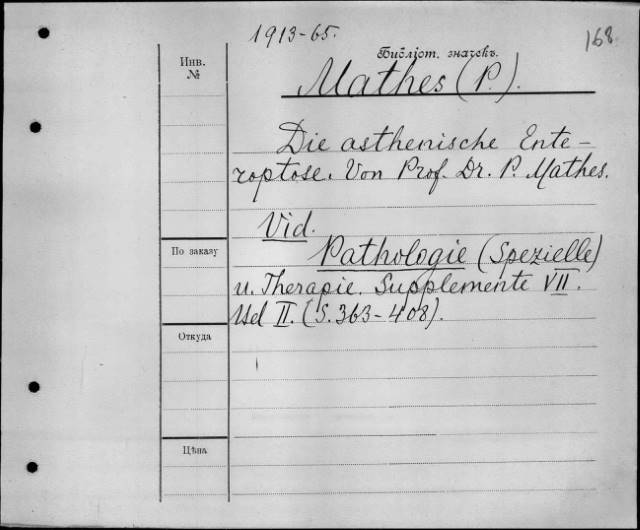 1913-65.
168.
Инв.
№
Библіот. значекъ.
Mathes (P.).
Die asthenische Ente-
roptose. Von Prof. Dr. P. Mathes.
Vid.
По заказу
Pathologie (Spezielle)
u. Therapie. Supplemente VII.
II. (S. 363-408).
Откуда
Цѣна